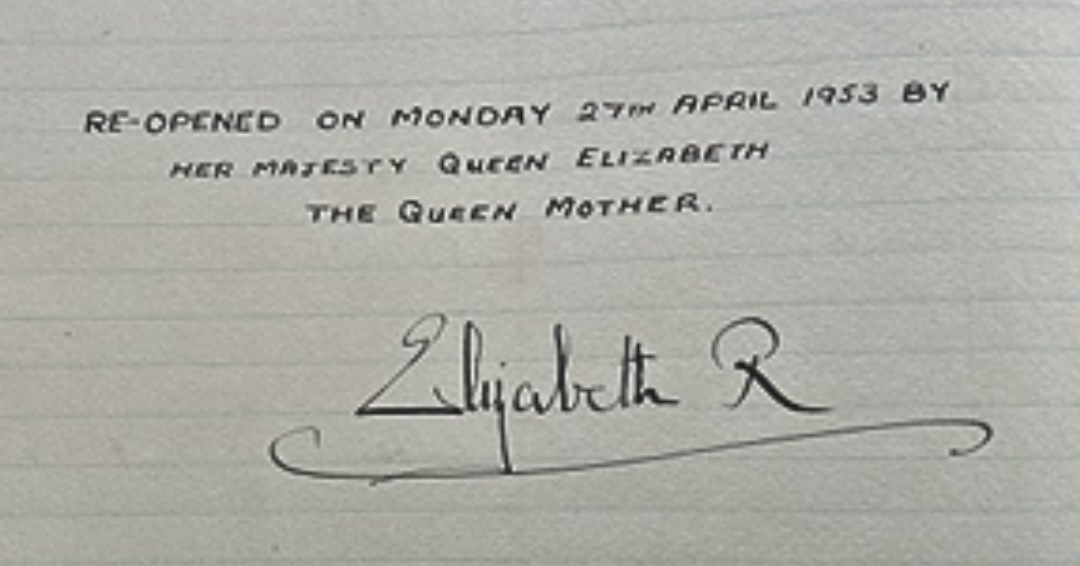 RE-OPENED ON MONDAY 27TH APRIL 1953 BY
HER MAJESTY QUEEN ELIZABETH
THE QUEEN MOTHER.
Elizabeth R